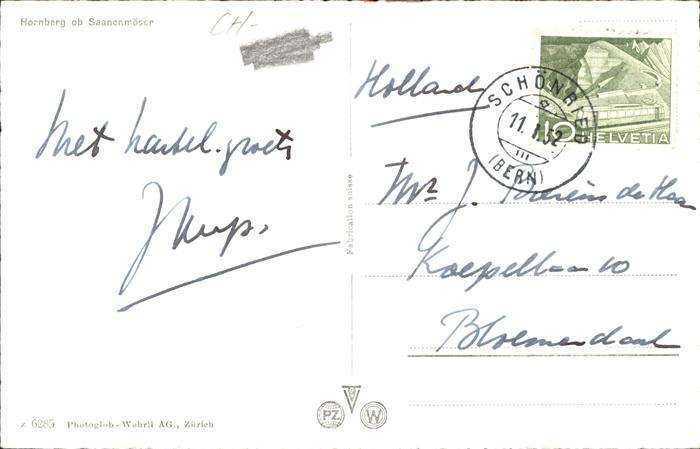 Hornberg ob Saanenmöser
CH-
Met hartel. groeten
Holland
SCHÖNRIED
11.1.52
III
(BERN)
10 HELVETIA
Mr J. de Haan
Koepellaan 10
Bloemendaal
Fabrication suisse
PZ W
z 6285 Photoglob-Wehrli AG., Zürich